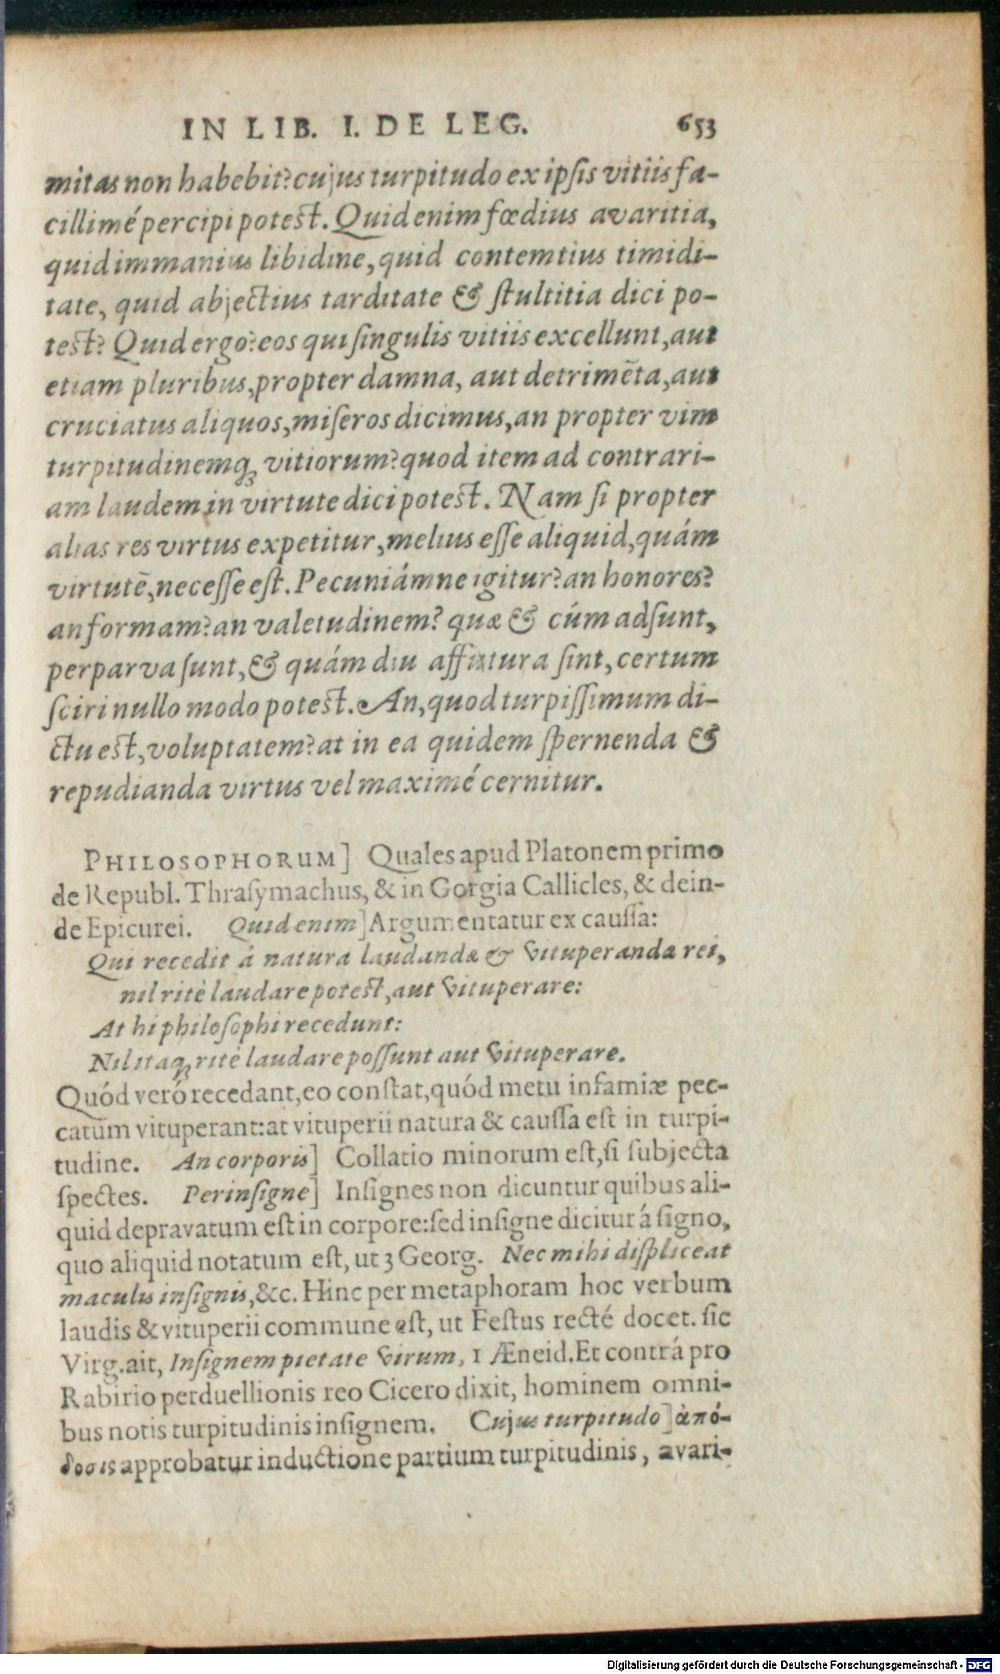 IN LIB. I. DE LEG. 653
mitas non habebit? cujus turpitudo ex ipſis vitiis fa-
cillimé percipi poteſt. Quid enim fœdius avaritia,
quid immanius libidine, quid contemtius timidi-
tate, quid abjectius tarditate & ſtultitia dici po-
teſt? Quid ergo? eos qui ſingulis vitiis excellunt, aut
etiam pluribus, propter damna, aut detrimẽta, aut
cruciatus aliquos, miſeros dicimus, an propter vim
turpitudinemq; vitiorum? quod item ad contrari-
am laudem in virtute dici poteſt. Nam ſi propter
alias res virtus expetitur, melius eſſe aliquid, quám
virtutẽ, neceſſe eſt. Pecuniámne igitur? an honores?
an formam? an valetudinem? quæ & cúm adſunt,
perparva ſunt, & quám diu affutura ſint, certum
ſciri nullo modo poteſt. An, quod turpiſſimum di-
ctu eſt, voluptatem? at in ea quidem ſpernenda &
repudianda virtus vel maximé cernitur.
PHILOSOPHORUM] Quales apud Platonem primo
de Republ. Thraſymachus, & in Gorgia Callicles, & dein-
de Epicurei. Quid enim] Argumentatur ex cauſſa:
Qui recedit á natura laudandæ & vituperanda rei,
nil rité laudare poteſt, aut vituperare:
At hi philoſophi recedunt:
Nil itaq; rité laudare poſſunt aut vituperare.
Quód veró recedant, eo conſtat, quód metu infamiæ pec-
catum vituperant: at vituperii natura & cauſſa eſt in turpi-
tudine. An corporis] Collatio minorum eſt, ſi ſubjecta
ſpectes. Perinſigne] Inſignes non dicuntur quibus ali-
quid depravatum eſt in corpore: ſed inſigne dicitur á ſigno,
quo aliquid notatum eſt, ut 3 Georg. Nec mihi diſpliceat
maculis inſignis, &c. Hinc per metaphoram hoc verbum
laudis & vituperii commune eſt, ut Feſtus recté docet. ſic
Virg. ait, Inſignem pietate virum, 1 Æneid. Et contrá pro
Rabirio perduellionis reo Cicero dixit, hominem omni-
bus notis turpitudinis inſignem. Cujus turpitudo] ἀπό-
δοσις approbatur inductione partium turpitudinis, avari-
Digitalisierung gefördert durch die Deutsche Forschungsgemeinschaft - DFG